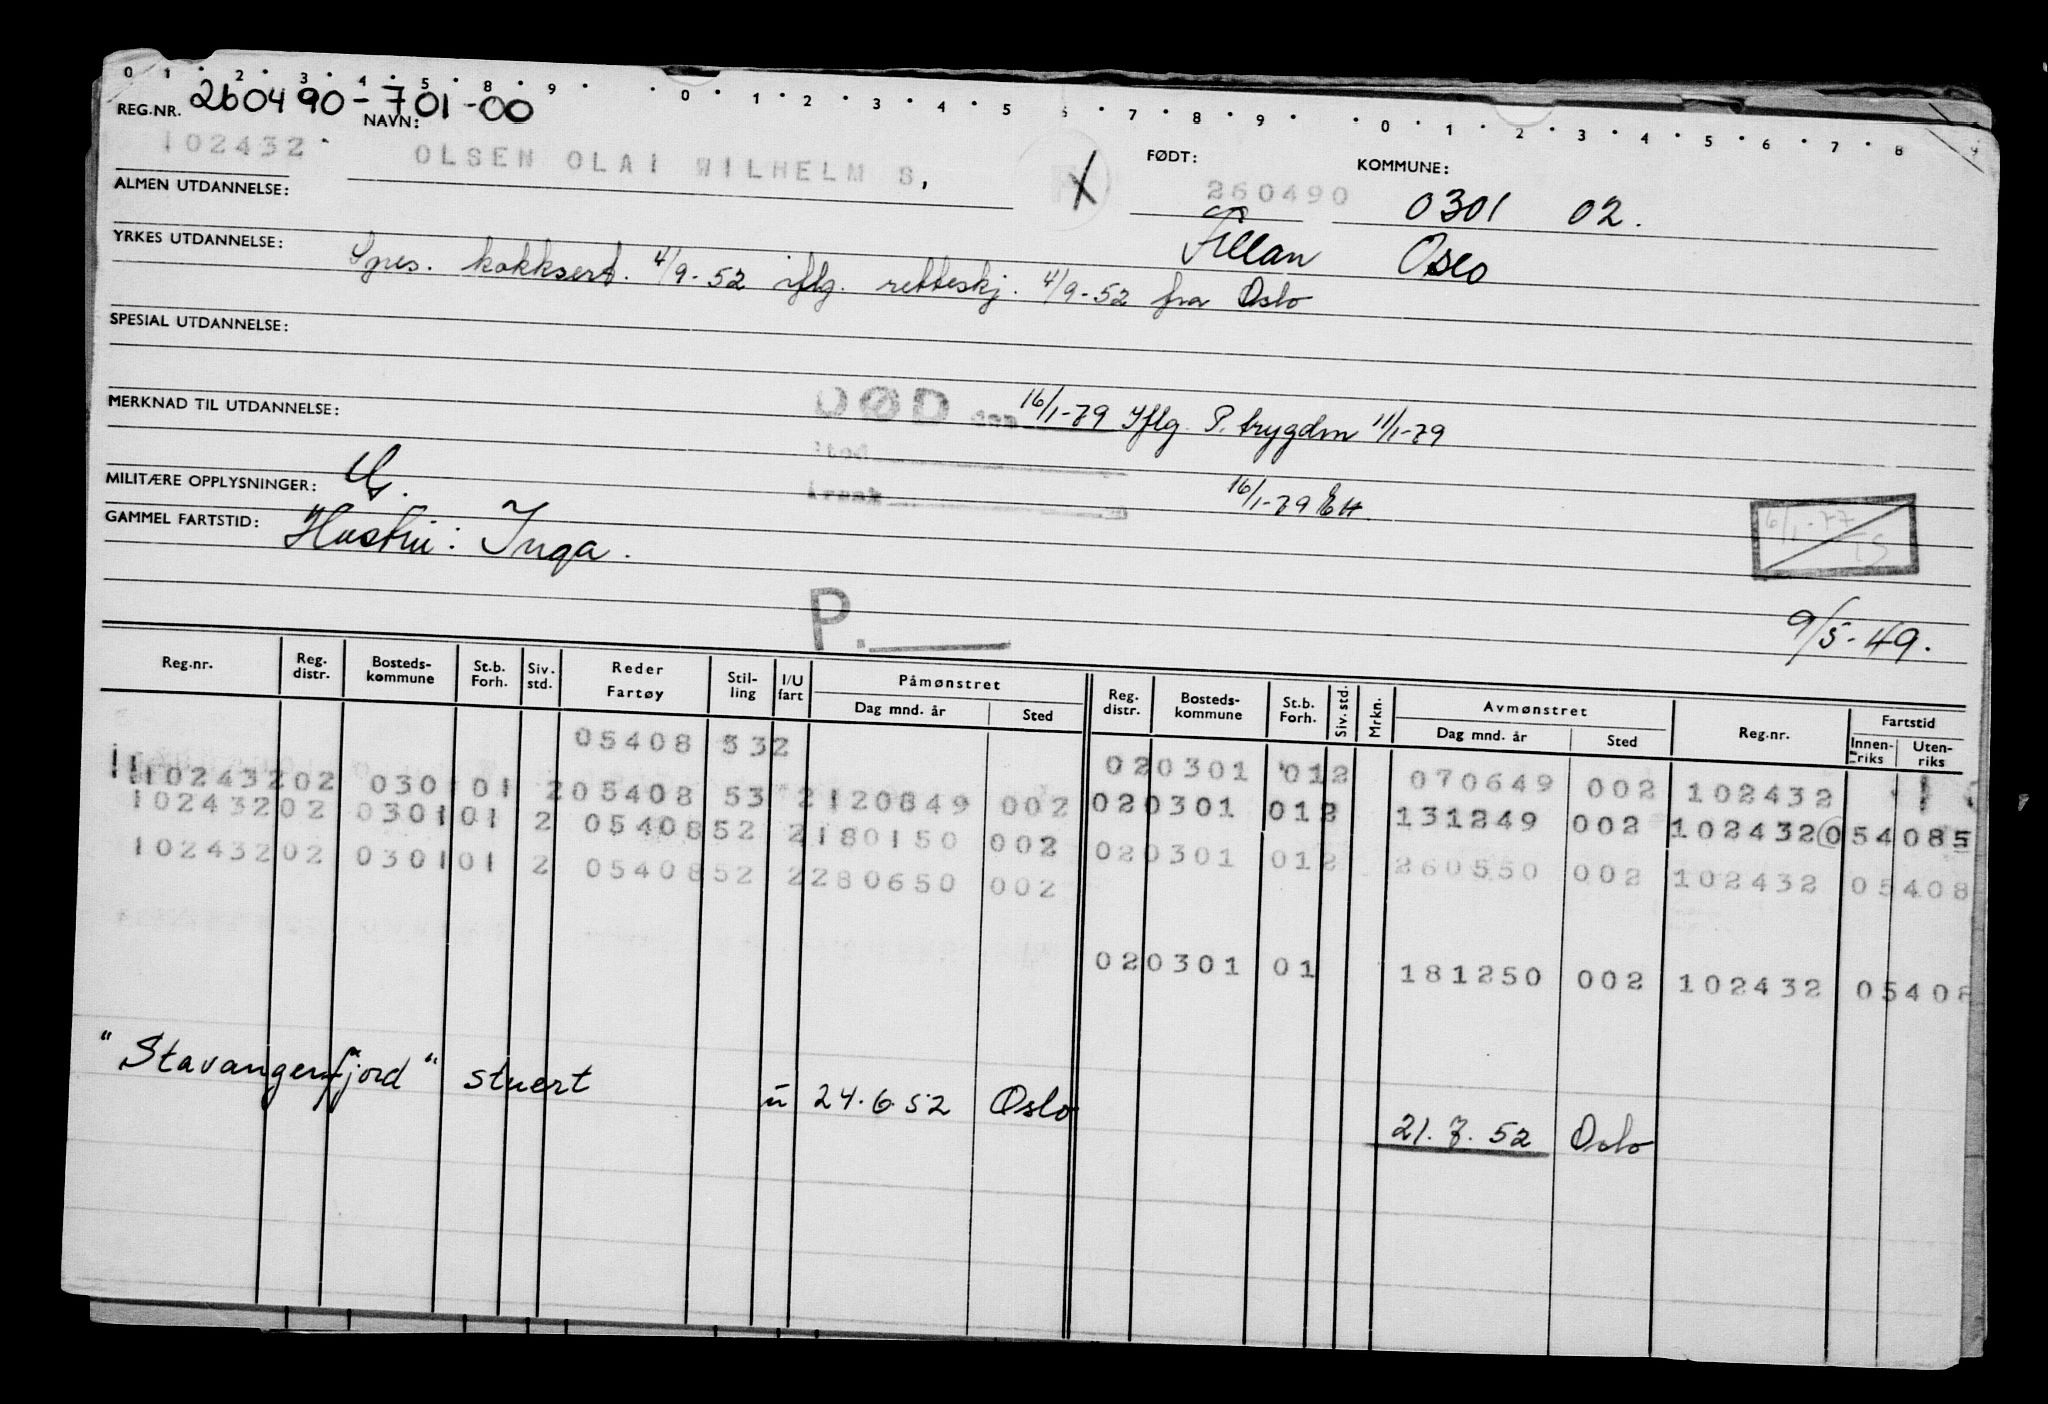 0 1 • 2 • 3 • 4 • 5 • 8 • 9 • • 0 • 1 • 2 • 3 • 4 • 5 • 7 • 8 • 9 • • 0 • 1 • 2 • 3 • 4 • 5 • 6 • 7 • 8 9
REG.NR. 260490-701-00
NAVN: FØDT: KOMMUNE:
102432 OLSEN OLAI WILHELM S, X 260490 0301 02.
ALMEN UTDANNELSE:
Fillan Oslo
YRKES UTDANNELSE: Spes. kokksert. 4/9-52 iflg. retteskj. 4/9-52 fra Oslo
SPESIAL UTDANNELSE:
MERKNAD TIL UTDANNELSE: DØD den 16/1-79 Iflg. P. trygdm 11/1-79
Sted
MILITÆRE OPPLYSNINGER: Årsak 16/1-79
GAMMEL FARTSTID: Hustru: Inga.
6/1-77
P.
9/5-49.
Reg.nr. Reg. distr. Bosteds-kommune St.b. Forh. Siv. std. Reder Fartøy Stil-ling I/U fart Påmønstret Dag mnd. år Sted Reg. distr. Bosteds-kommune St.b. Forh. Siv. std. Mrkn. Avmønstret Dag mnd. år Sted Reg.nr. Fartstid Innen-riks Uten-riks
05408 532 020301 012 070649 002 102432
10243202 030 01 205408 53 2120849 002 020301 012 131249 002 102432 054085
10243202 030101 2 0540852 2180150 002 020301 012 260550 002 102432 05408
10243202 030101 2 0540852 2280650 002
020301 01 181250 002 102432 05408
"Stavangerfjord" stuert u 24.6.52 Oslo 21.7.52 Oslo